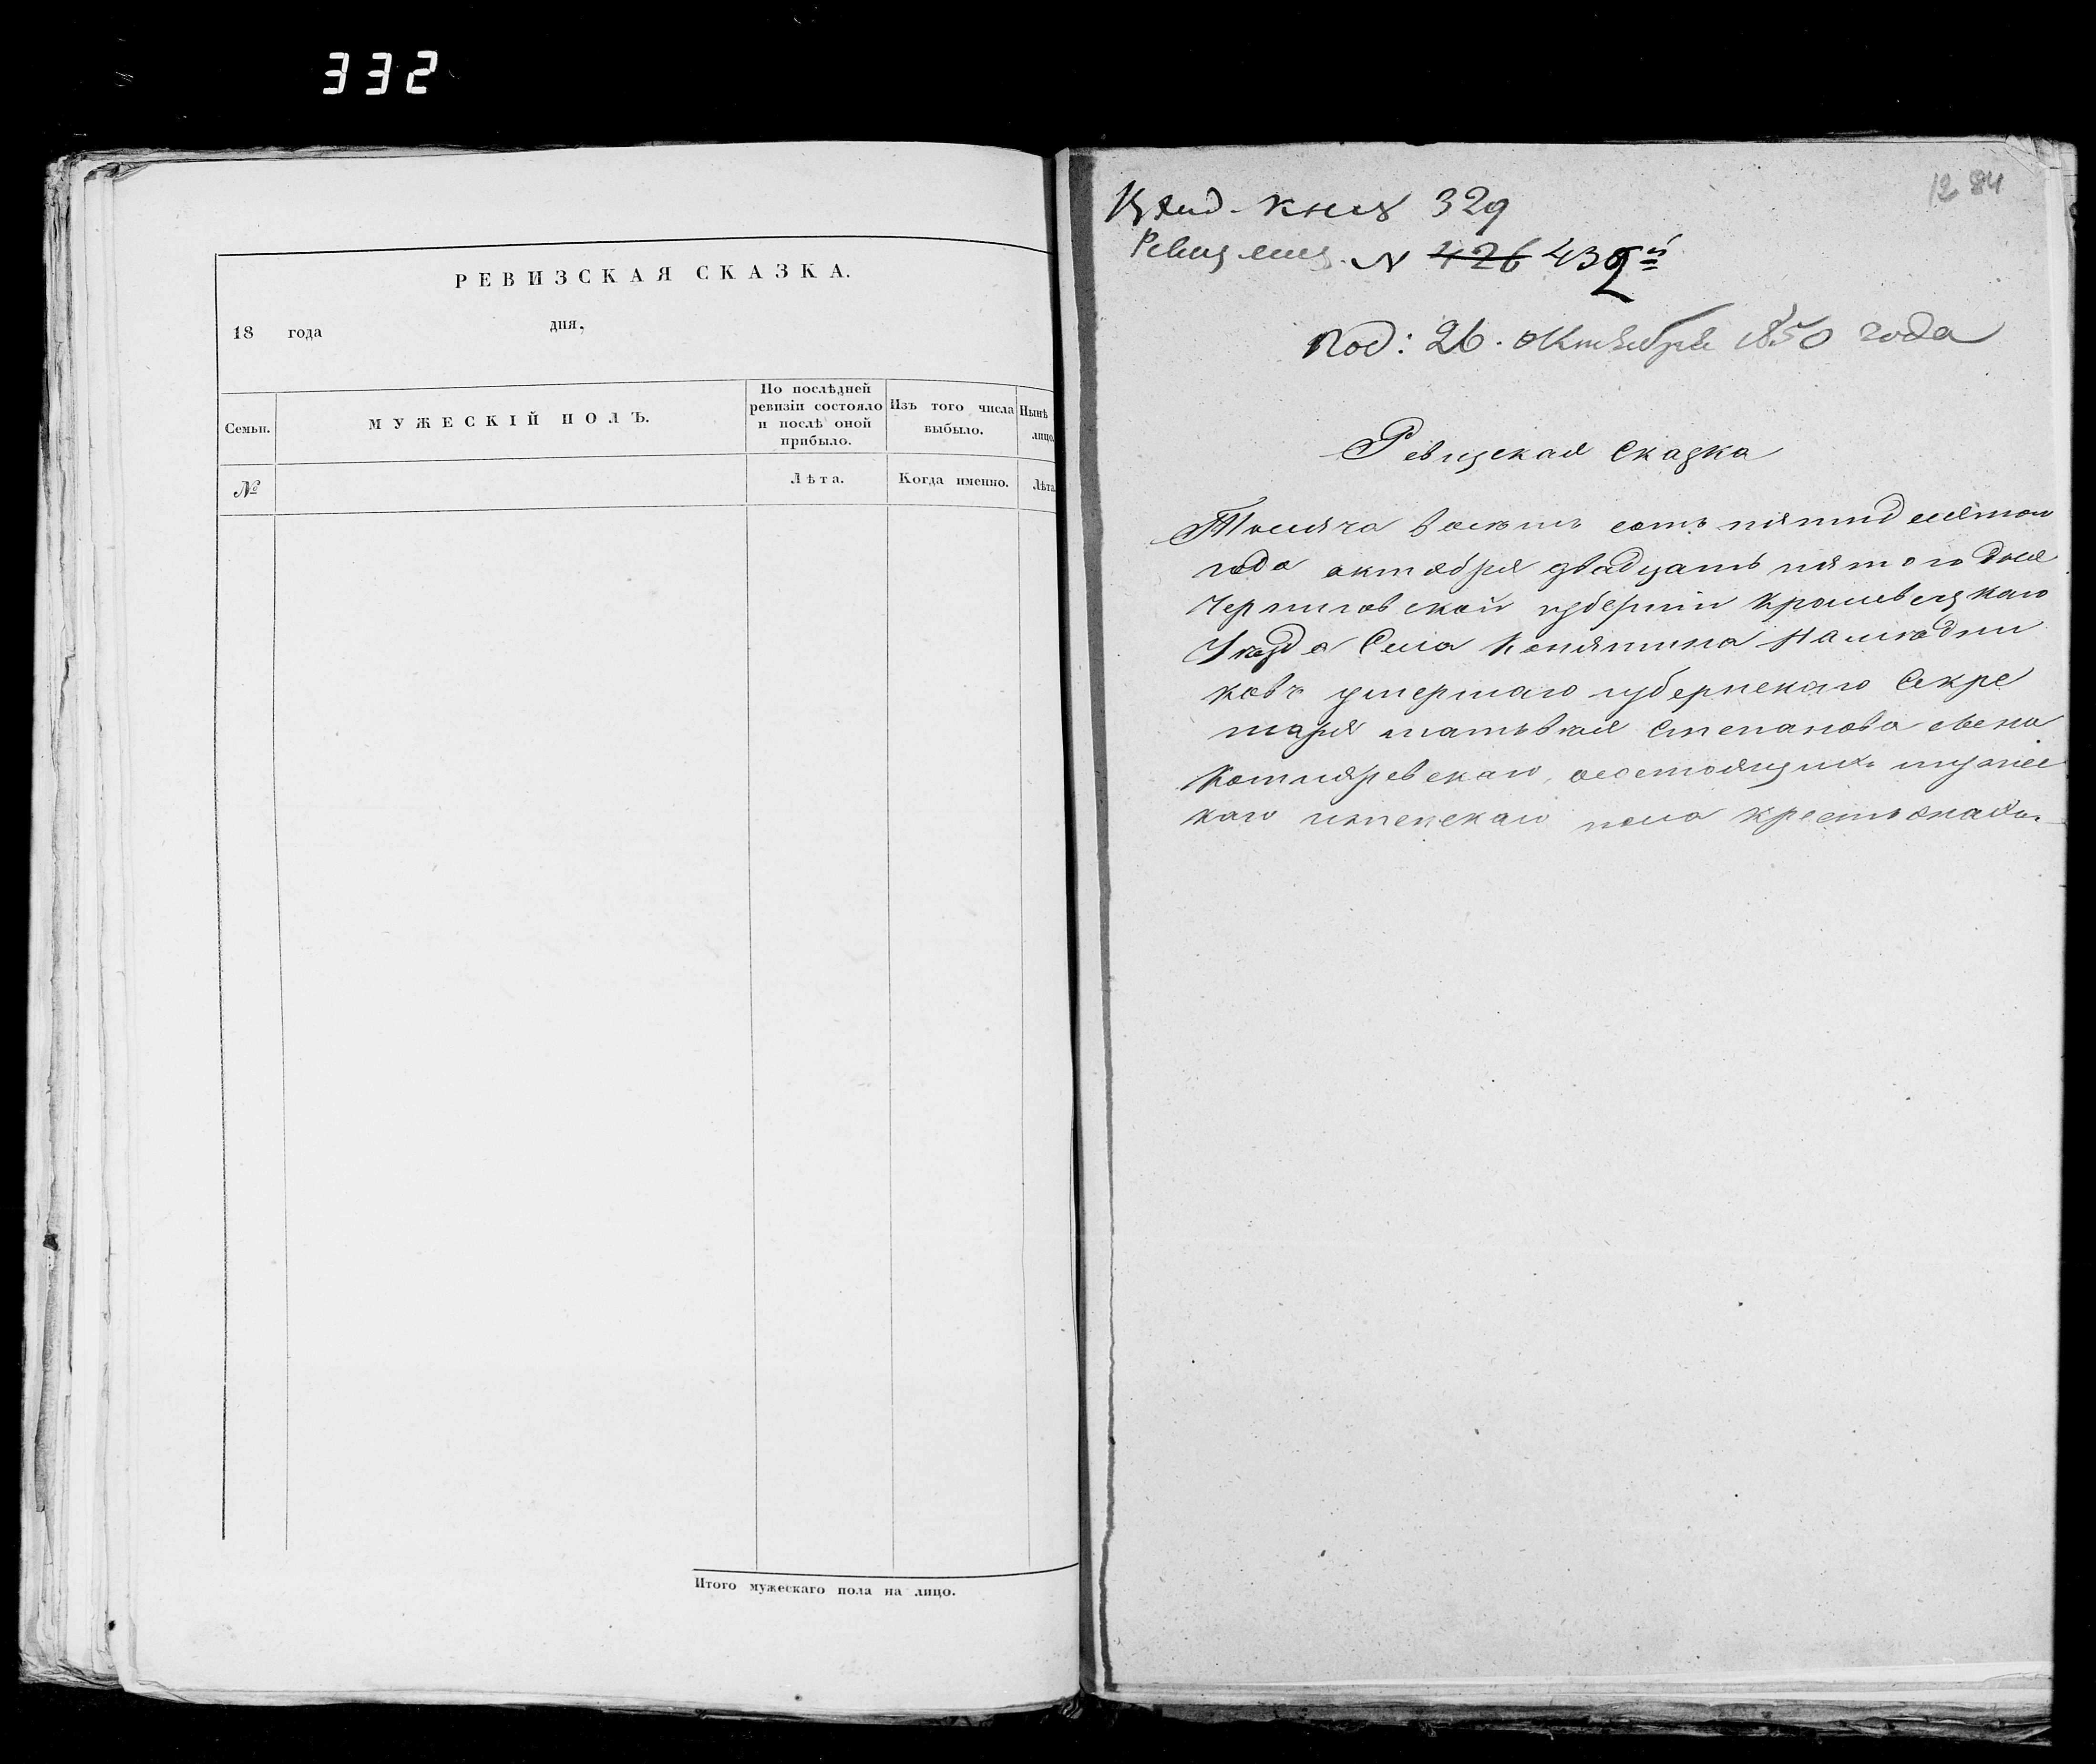 332
РЕВИЗСКАЯ СКАЗКА.
18 года дня,
Семьи.
МУЖЕСКІЙ ПОЛЪ.
По послѣдней
ревизіи состояло
и послѣ оной
прибыло.
Изъ того числа
выбыло.
Нынѣ
лицо
№
Лѣта.
Когда именно.
Лѣта
Итого мужескаго пола на лицо.
12 84
329
Ревиз N 426 432й
Под: 26. Октября 1850 года
Ревизская Сказка
Тысяча восемъ сотъ пятидесятого
года октября двадцать пятого дня
Черниговской губерніи Кролевецкаго
Уѣзда Села Конятина Наслѣдни
ковъ умершаго губернского Секре
таря Матьвѣя Степанова сына
Котляревскаго, состоящихъ мужес
каго иженскаго пола крестьянахъ.